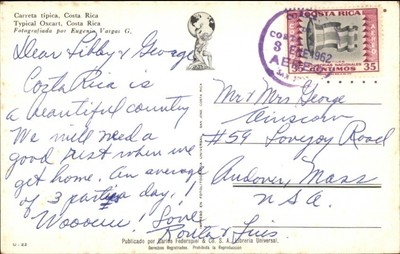 Carreta típica, Costa Rica
Typical Oxcart, Costa Rica
Fotografiada por Eugenio Vargas G,
Dear Libby & George
Costa Rica is
a beautiful country
We will need a
good rest when we
get home. An average
of 3 parties a day,
Wooeeee! Love
COSTA RICA
3 ENE 1962
AEREO
35 CENTIMOS 35
Mr & Mrs George
#59 Lovejoy Road
Andover, Mass
U.S.A.
Publicado por Carlos Federspiel & Co. S. A. Librería Universal.
Derechos Registrados. Prohibida la Reproducción